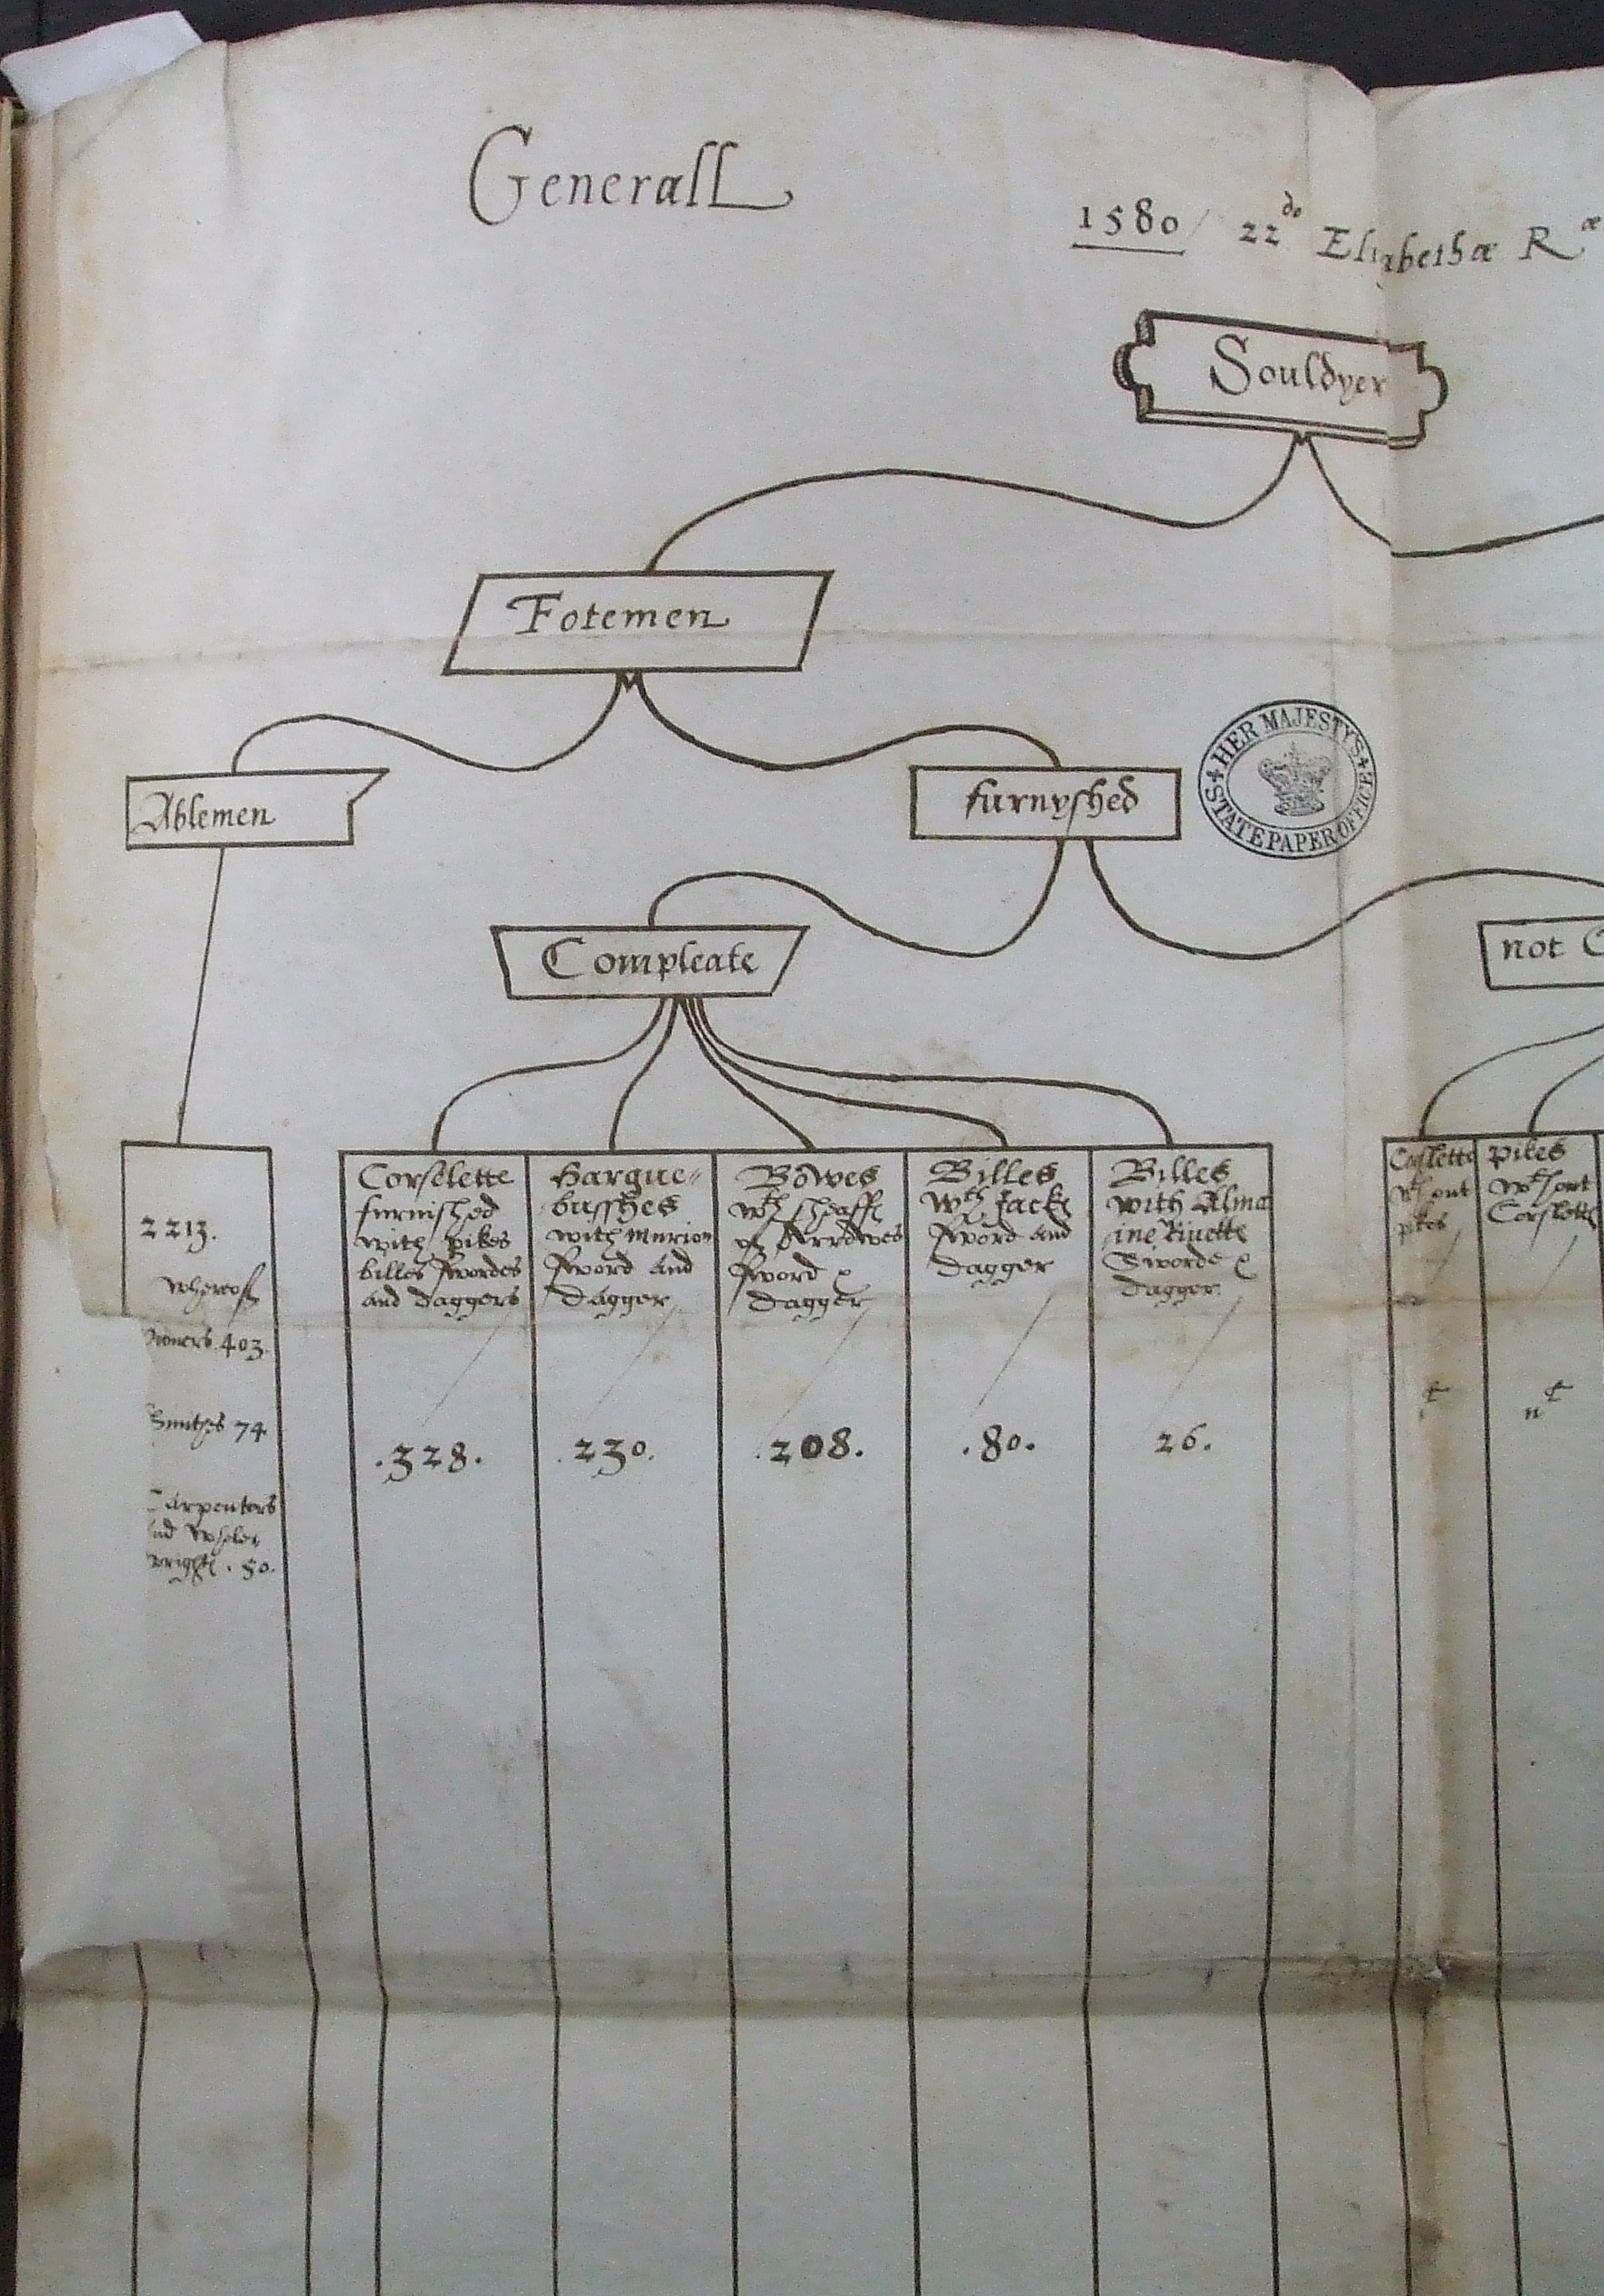 Generall
1580 / 22do Elizabethæ Ræ
Souldyer
Fotemen
Ablemen
furnyshed
HER MAJESTY'S
STATE PAPER OFFICE
Compleate
not C
2213.
whereof
ioners 403.
Smithes 74
arpenters
nd Whele
wright . 80.
Corselette
furnished
with pikes
billes swordes
and daggers
.328.
Hargue〃
busshes
with murion
sword and
Dagger
.230.
Bowes
wth sheaffe
of Arrowes
sword &
Dagger
.208.
Billes
wth Jacke
sword and
Dagger
.80.
Billes
with Alma
ine Rivette
Sworde &
Dagger
26.
Corslette
wthout
pikes
Pikes
wthout
Corslette